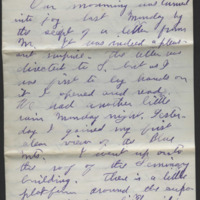 Our mourning was turned
into joy last Monday by
the receipt of a letter from
M. It was indeed a pleas-
ant surprise. The letter was
directed to S. but as I
was first to lay hands on
it I opened and read.
We had another little
rain Monday night. Yester-
day I gained my first
clear view of the Blue
Mts. I went up onto
the roof of the Seminary
building. There is a little
platform around the cupo-